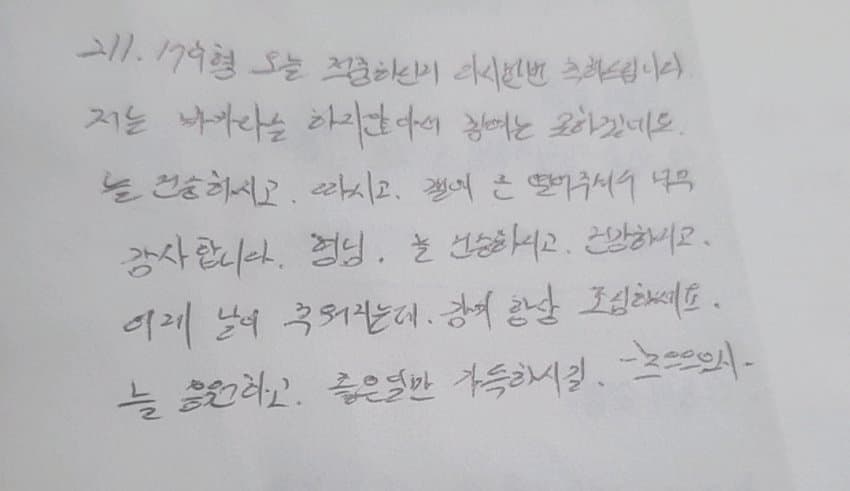 211. 179형 오늘 적중하신거 다시한번 축하드립니다
저는 바카라는 하지않아서 참여는 못하겠네요.
늘 건승하시고. 따시고. 이벤 열어주셔서 너무
감사합니다. 형님. 늘 건승하시고. 건강하시고.
이제 날이 추워지는데. 감기 항상 조심하세요.
늘 응원하고. 좋은날만 가득하시길.